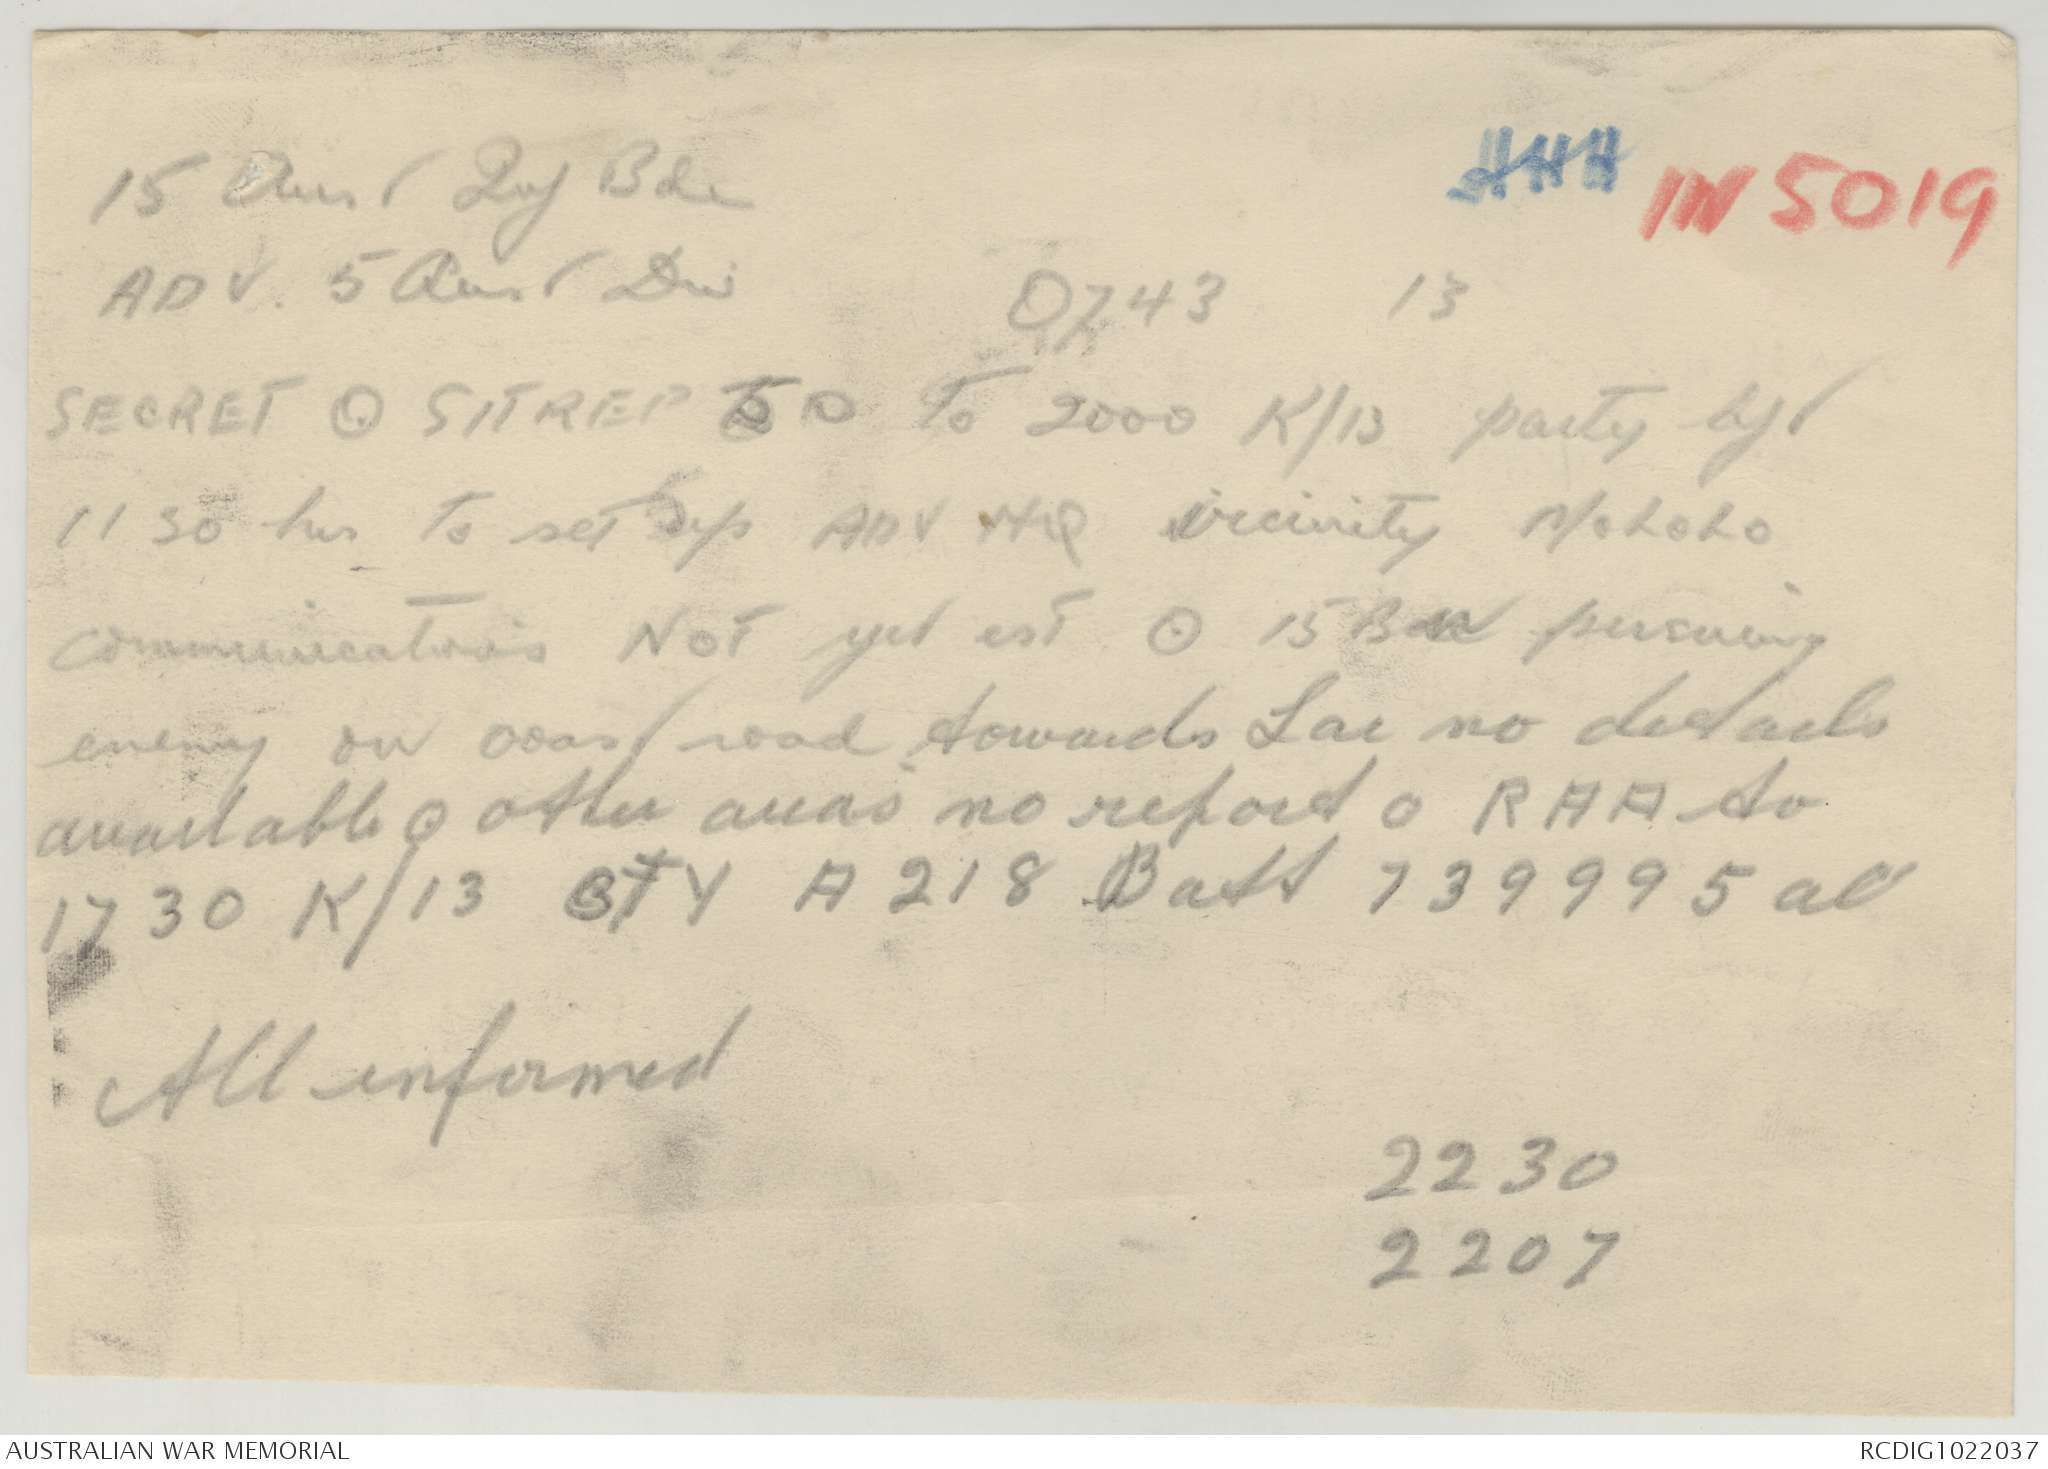 15 Aust Inf Bde
IN 5019
ADV. 5 Aust Div
0743 13
SECRET ⊙ SITREP to 2000 K/13 party left
1130 hrs to set up ADV HQ vicinity MOLOLO
communications NOT yet est ⊙ 15 Bn persuing
enemy on coast road towards Lae no details
available ⊙ other areas no report ⊙ RAA to
1730 K/13 BTY A 218 Batt 739995 all
All informed
2230
2207
AUSTRALIAN WAR MEMORIAL
RCDIG1022037